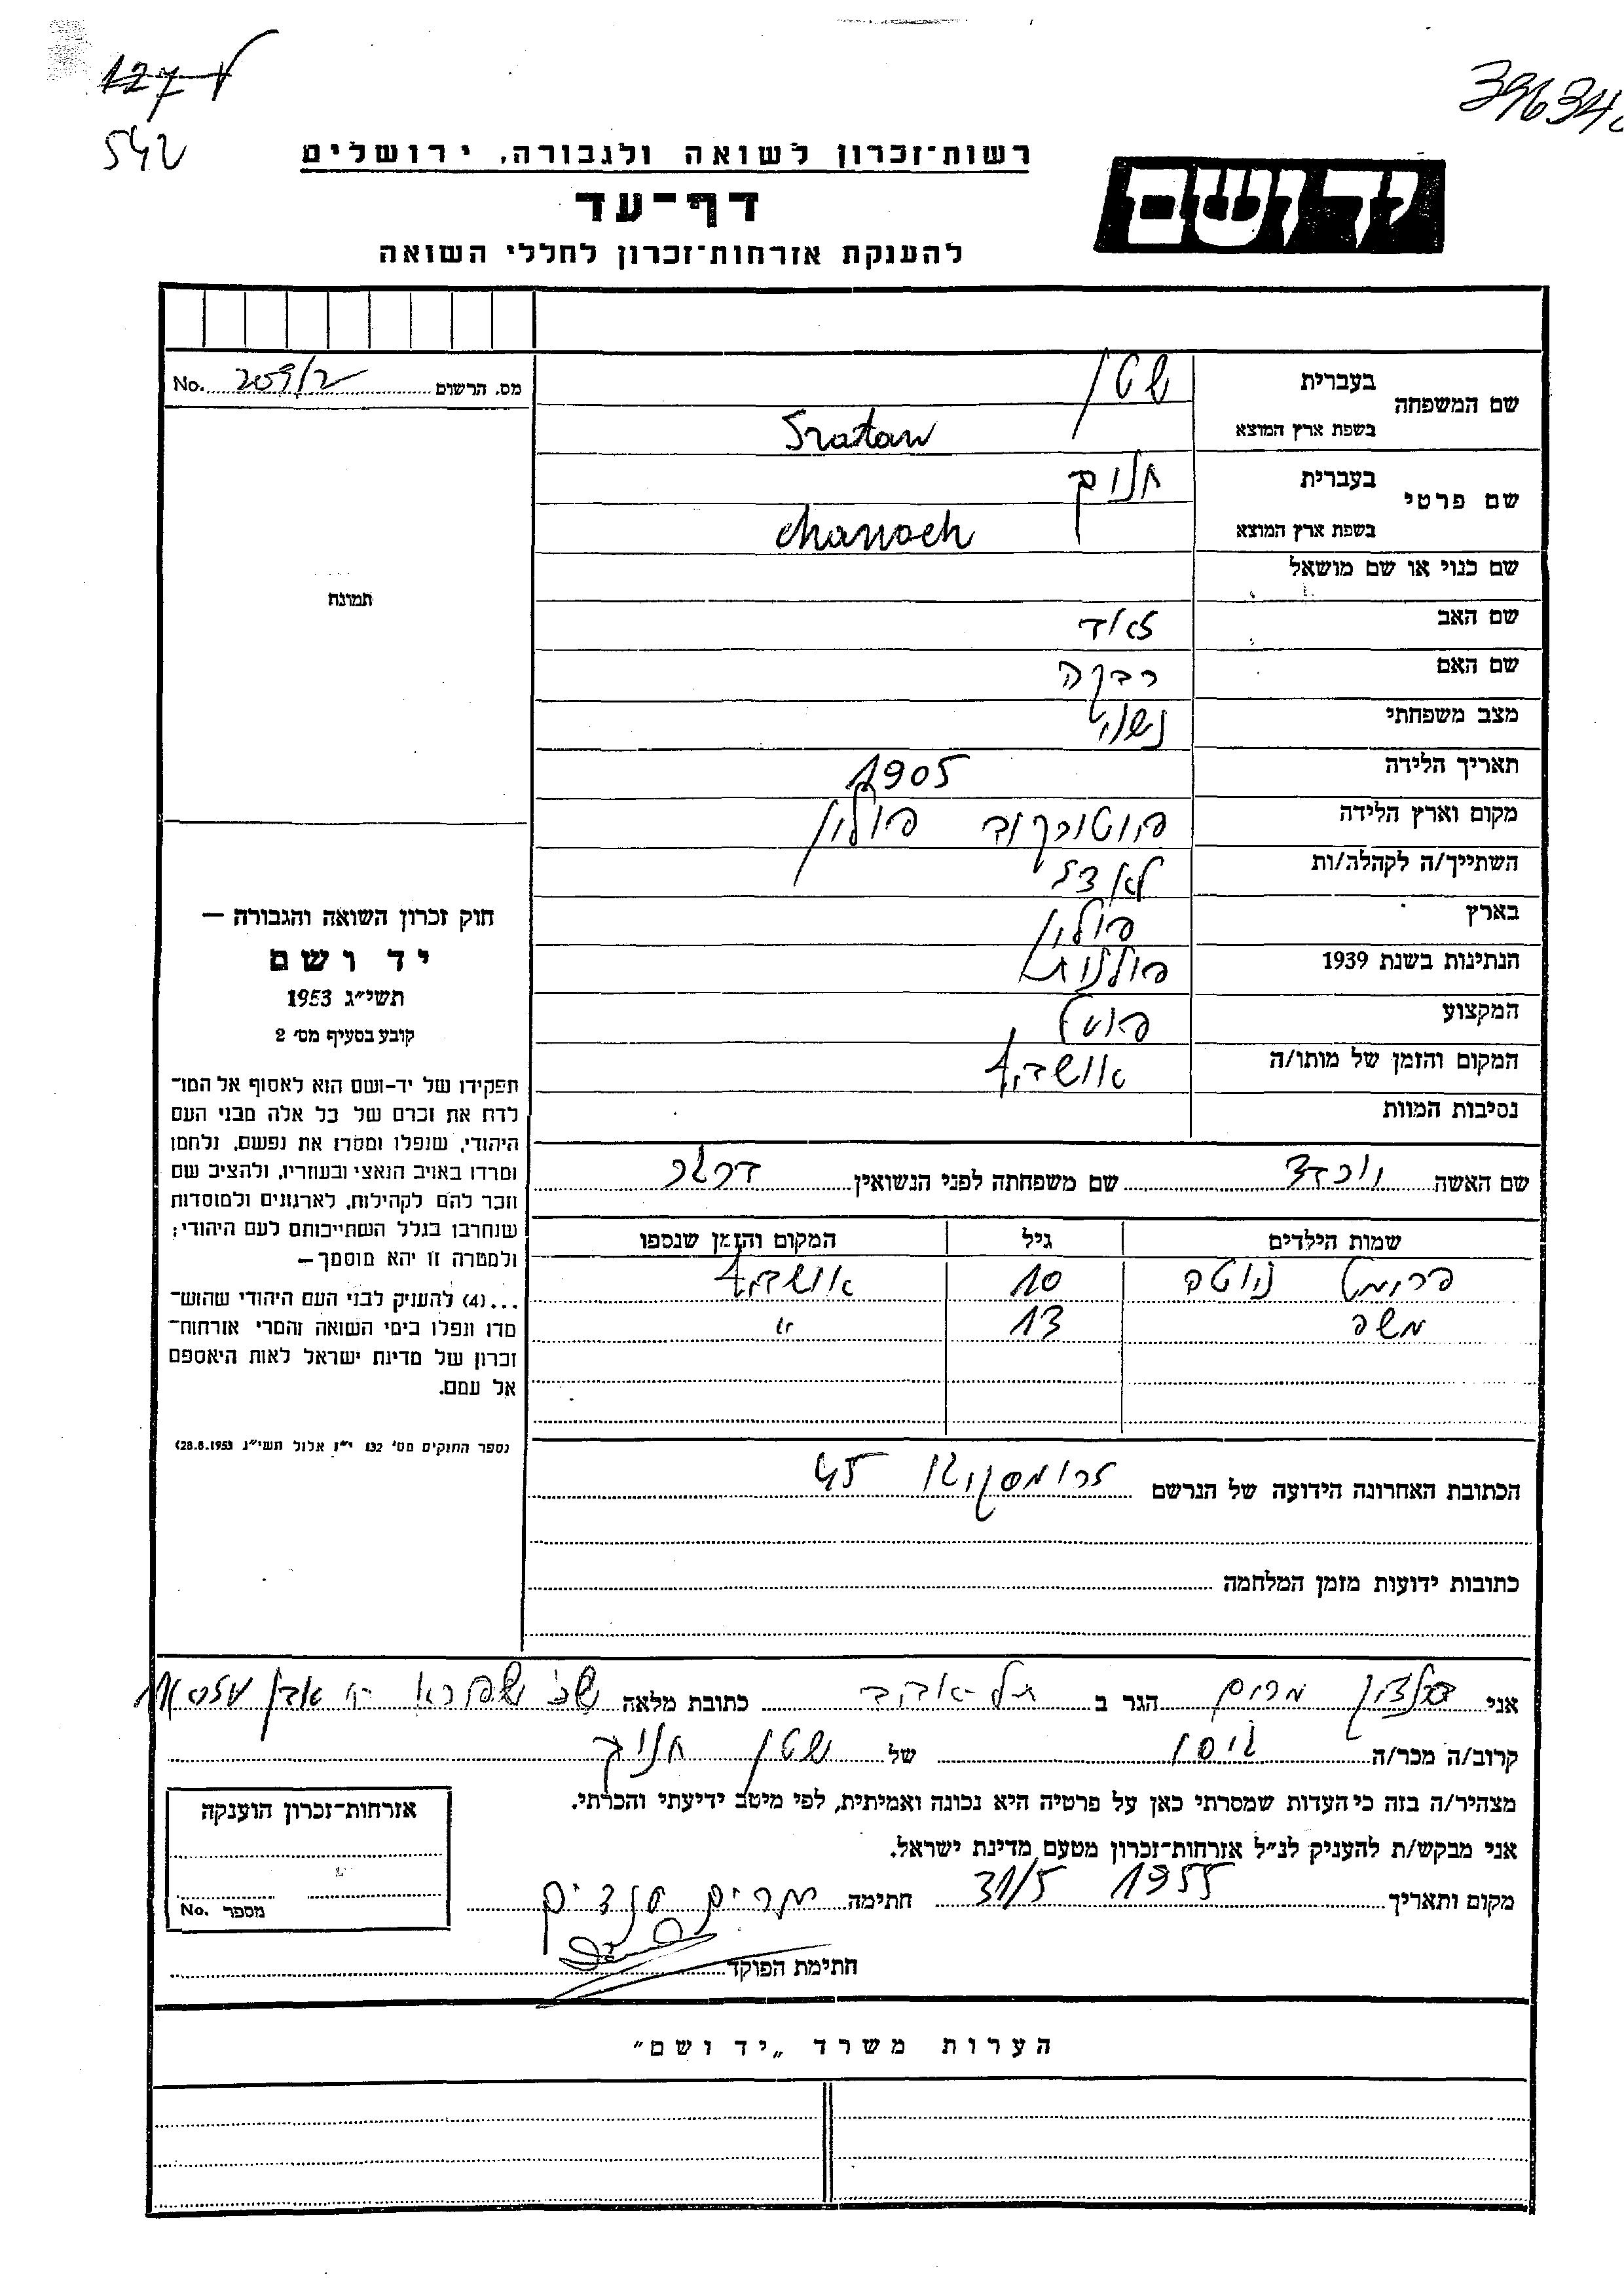 542
רשות־זכרון לשואה ולגבורה, ירושלים
דף־עד
להענקת אזרחות־זכרון לחללי השואה
יד ושם
מס. הרשום No.
שם המשפחה
בעברית שטן
בשפת ארץ המוצא
שם פרטי
בעברית חנוך
בשפת ארץ המוצא chanoch
תמונה
שם כנוי או שם מושאל
שם האב
שם האם רבקה
מצב משפחתי נשוי
תאריך הלידה 1905
מקום וארץ הלידה פיוטורקוב פולין
השתייך/ה לקהלה/ות לאדז
בארץ פולין
הנתינות בשנת 1939 פולנית
המקצוע פועל
המקום והזמן של מותו/ה אושביץ
נסיבות המוות
שם האשה שם משפחתה לפני הנשואין
שמות הילדים גיל המקום והזמן שנספו
10 אושביץ
משה 13 "
הכתובת האחרונה הידועה של הנרשם 45
כתובות ידועות מזמן המלחמה
חוק זכרון השואה והגבורה —
יד ושם
תשי״ג 1953
קובע בסעיף מס׳ 2
תפקידו של יד-ושם הוא לאסוף אל המו־
לדת את זכרם של כל אלה מבני העם
היהודי, שנפלו ומסרו את נפשם, נלחמו
ומרדו באויב הנאצי ובעוזריו, ולהציב שם
וזכר להם לקהילות, לארגונים ולמוסדות
שנחרבו בגלל השתייכותם לעם היהודי;
ולמטרה זו יהא מוסמך—
...(4) להעניק לבני העם היהודי שהוש־
מדו ונפלו בימי השואה והמרי אזרחות־
זכרון של מדינת ישראל לאות היאספם
אל עמם.
(ספר החוקים מס׳ 132 י״ז אלול תשי״ג 28.8.1953)
אני מרים הגר ב תל-אביב כתובת מלאה
קרוב/ה מכר/ה גיסו של שטן חנוך
מצהיר/ה בזה כי העדות שמסרתי כאן על פרטיה היא נכונה ואמיתית, לפי מיטב ידיעתי והכרתי.
אני מבקש/ת להעניק לנ״ל אזרחות־זכרון מטעם מדינת ישראל.
מקום ותאריך 1955 31/5 חתימה מרים
חתימת הפוקד
אזרחות־זכרון הוענקה
מספר No.
הערות משרד „יד ושם״